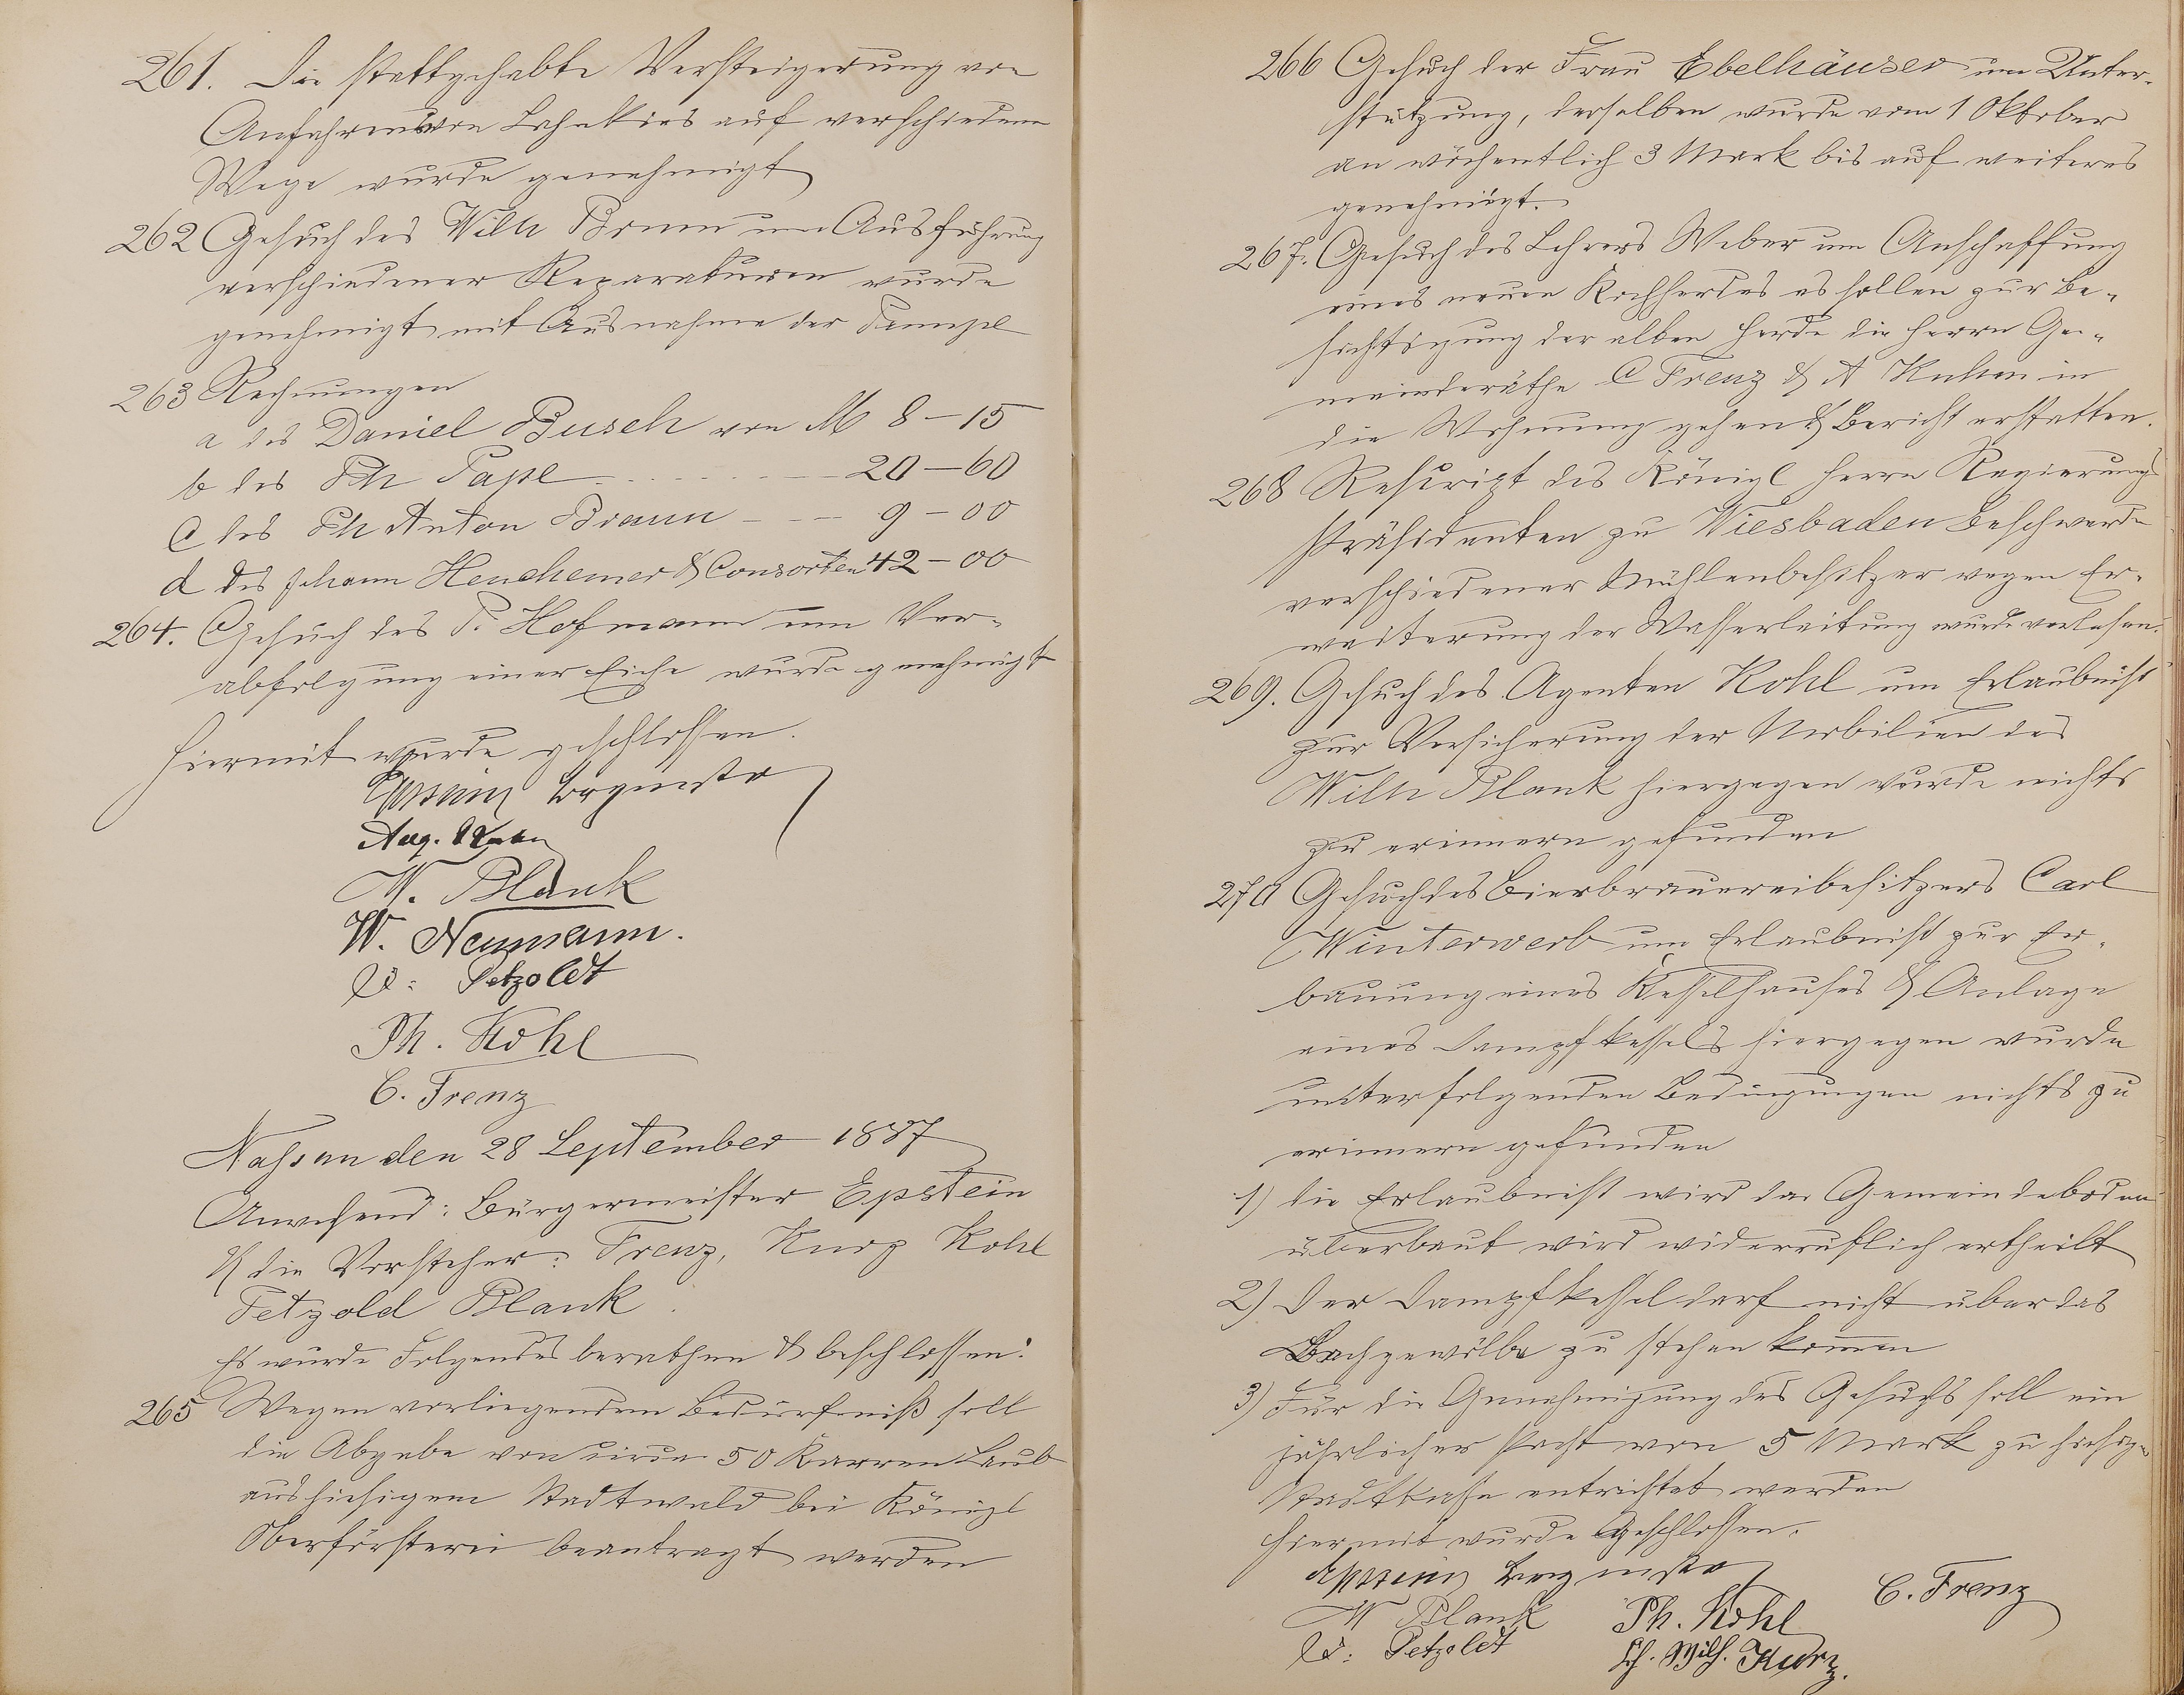 261. Die stattgehabte Versteigerung von
Anfahren von Lahnkies auf verschiedene
Wege wurde genehmigt
262 Gesuch des Wilh Bonn um Ausführung
verschiedener Reparaturen wurde
genehmigt mit Ausnahme der
263 Rechnungen
a des Daniel Busch von M 8-15
b des Ph Pape 20-60
c des Ph Anton Braun 9-00
d des Johann Henchemer & Consorten 42-00
264. Gesuch des P. Hofmann um Ver-
abfolgung einer Eiche wurde genehmigt
Hiermit wurde geschlossen.
Epstein Brgmstr
Aug.
W. Blank
W. Neumann.
W: Petzoldt
Ph. Kohl
C. Frenz
Nassau den 28 September 1887
Anwesend: Bürgermeister Epstein
& die Vorsteher: Frenz, Kurz Kohl
Petzold Blank.
Es wurde Folgendes berathen & beschlossen:
265 Wegen vorliegendem Bedürfniß soll
die Abgabe von circa 50 Karren Laub
aus hiesigem Stadtwald bei Königl
Oberförsterei beantragt werden
266 Gesuch der Frau Ebelhäuser um Unter-
stützung, derselben wurde vom 1 Oktober
an wöchentlich 3 Mark bis auf weiteres
genehmigt.
267. Gesuch des Lehrers Weber um Anschaffung
eines neuen Kochherdes es sollen zur Be-
sichtigung der alten Herde die Herrn Ge-
meinderäthe C Frenz & A Kuhn in
die Wohnung gehen & Bericht erstatten.
268 Rescript des Königl Herrn Regierungs
Präsidenten zu Wiesbaden Beschwerde
verschiedener Mühlenbesitzer wegen Er-
weiterung der Wasserleitung wurde verlesen.
269. Gesuch des Agenten Kohl um Erlaubniß
zur Versicherung der Mobilien des
Wilh Blank hiergegen wurde nichts
zu erinnern gefunden
270 Gesuch des Bierbrauereibesitzers Carl
Winterwerb um Erlaubniß zur Er-
bauung eines Kesselhauses & Anlage
eines Dampfkessels hiergegen wurde
unter folgenden Bedingungen nichts zu
erinnern gefunden
1) die Erlaubniß wird da Gemeindeboden
überbaut wird widerruflich ertheilt
2) Der Dampfkessel darf nicht über das
Bachgewölbe zu stehen kommen
3) Für die Genehmigung des Gesuchs soll ein
jährlicher Pacht von 5 Mark zu hiesiger
Stadtkasse entrichtet werden
Hiermit wurde Geschlossen.
Epstein Brgmstr
C. Frenz
W Blank Ph. Kohl
W: Petzoldt Ph. Wilh. Kurz.